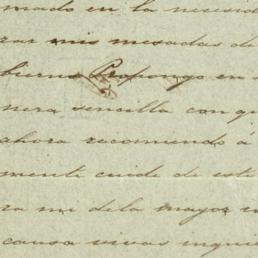 mado en la necesid
rar mis mesadas de
bierno Propongo en
nera sencilla con qu
ahora recomiendo á
mente cuide de este
ra mi de la mayor
causa vivas inquie